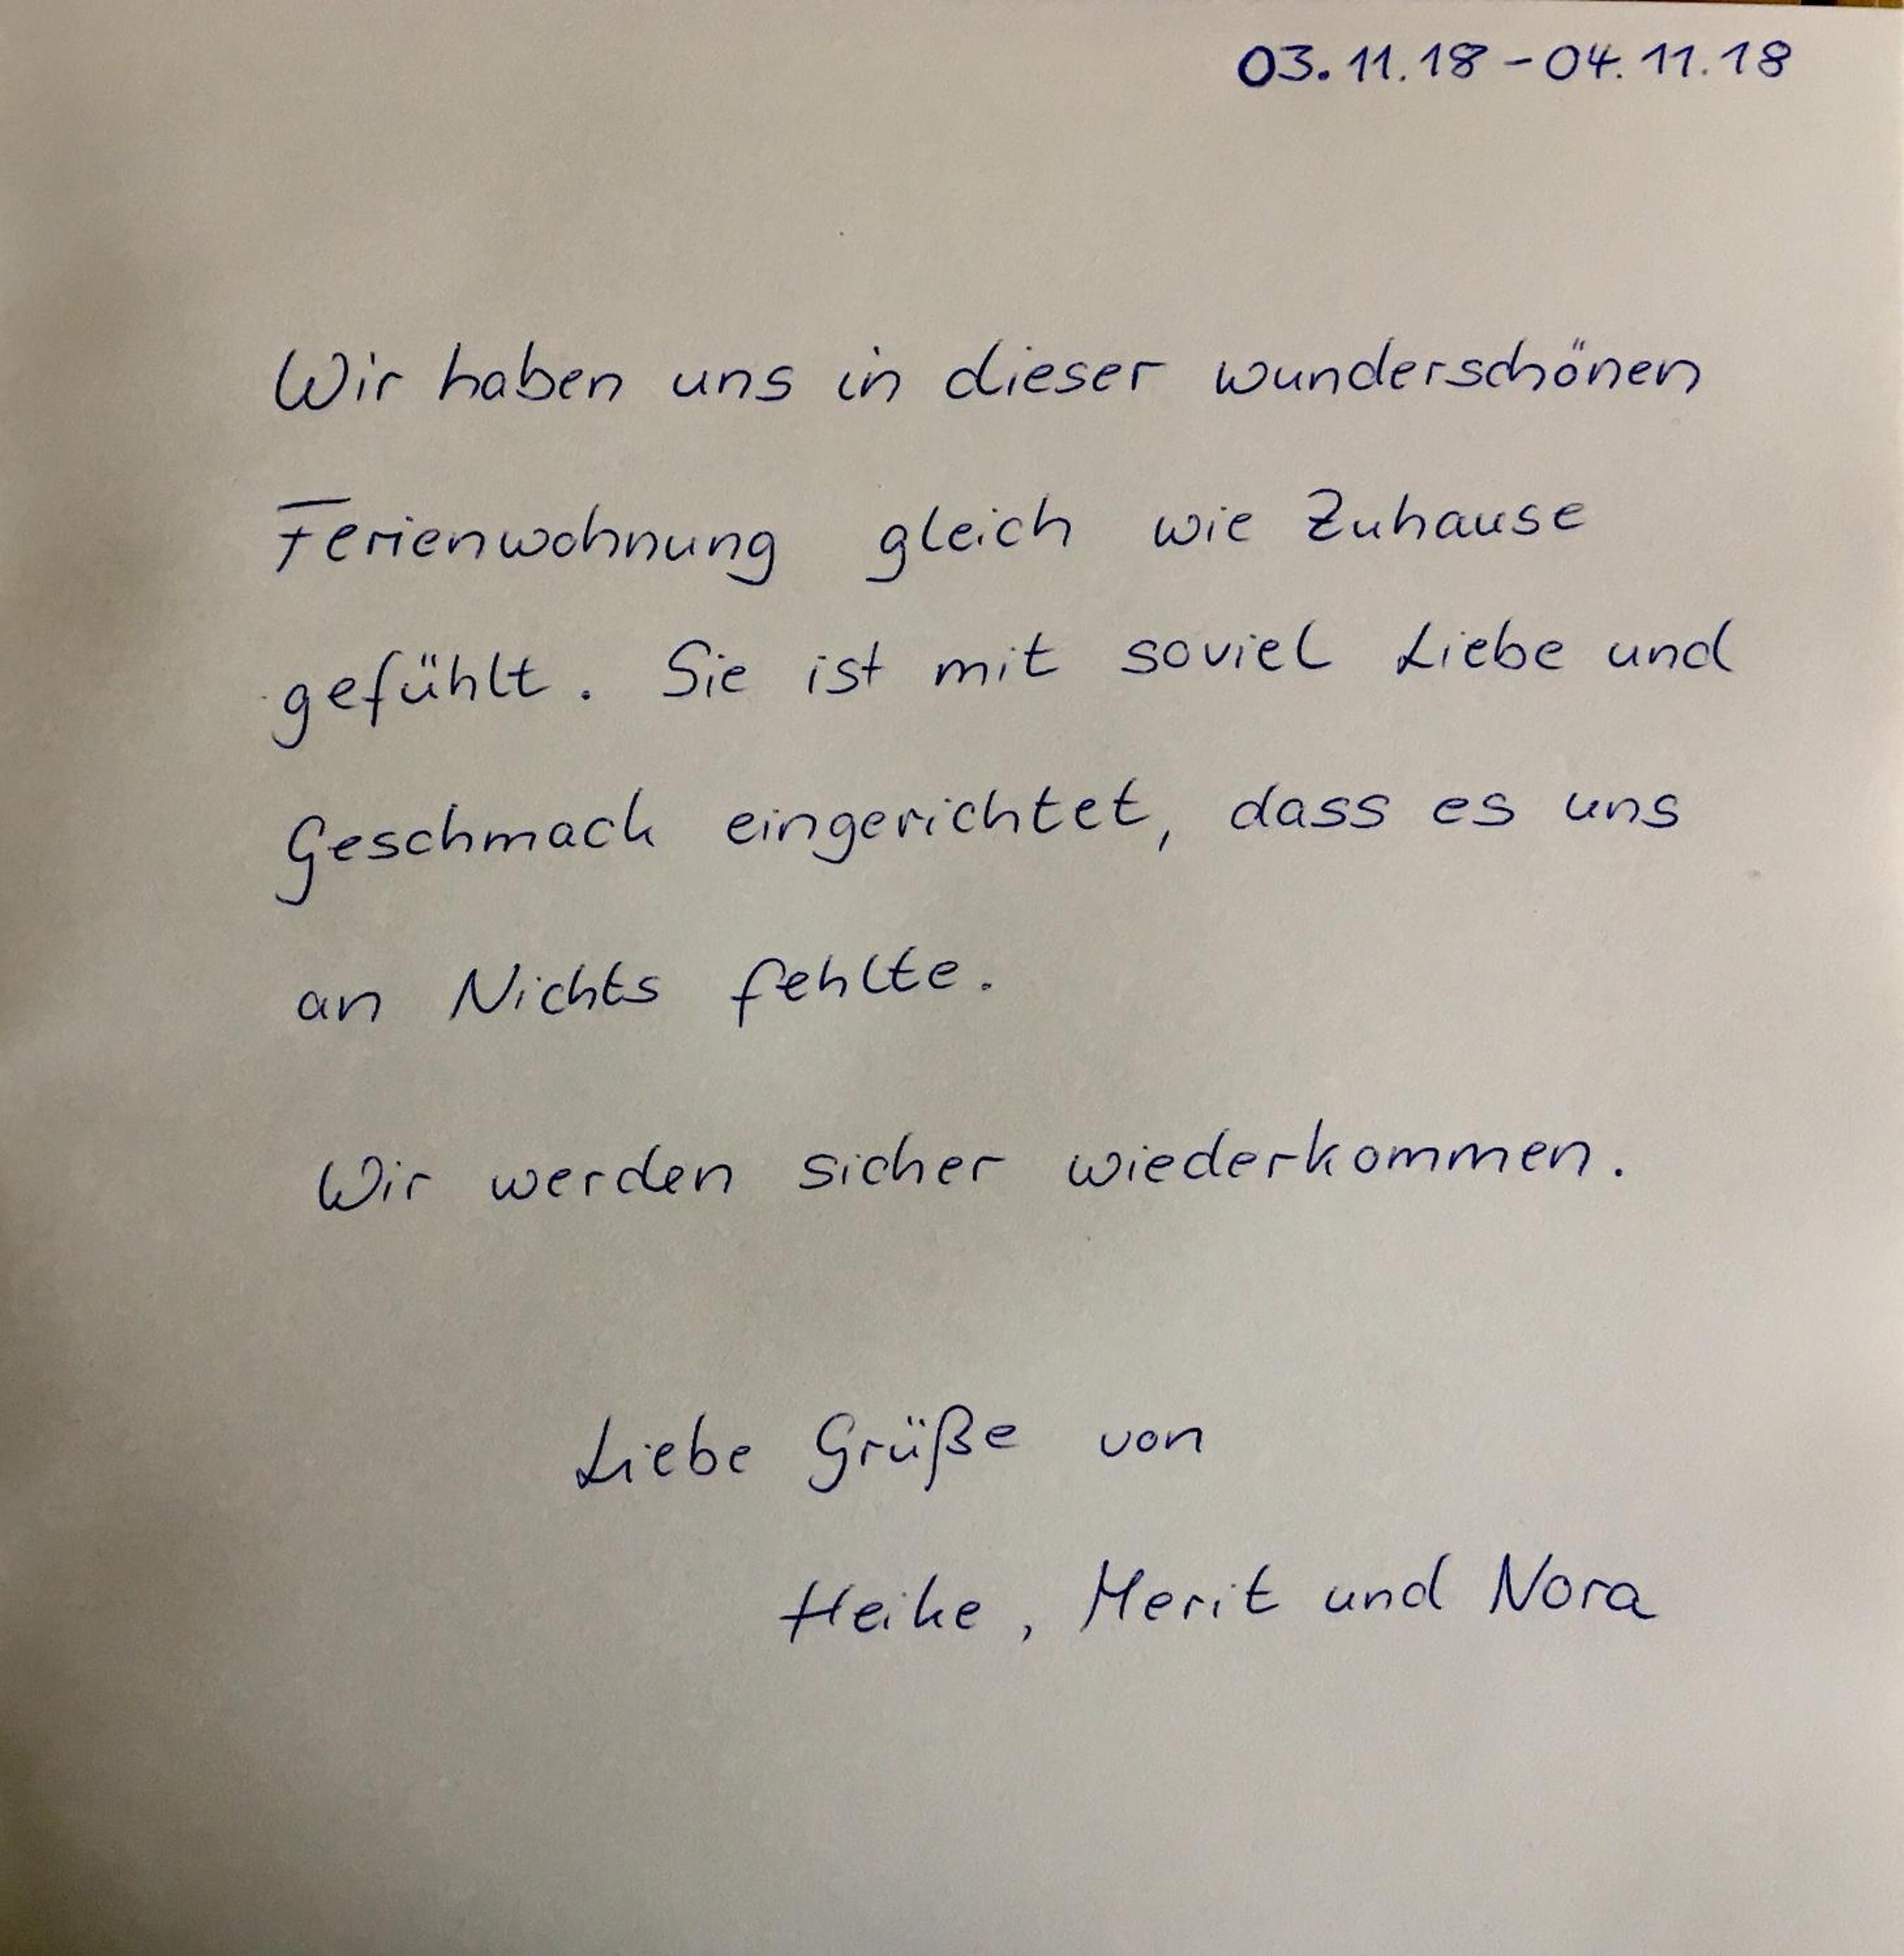 03.11.18 - 04.11.18
Wir haben uns in dieser wunderschönen
Ferienwohnung gleich wie Zuhause
gefühlt. Sie ist mit soviel Liebe und
Geschmack eingerichtet, dass es uns
an Nichts fehlte.
Wir werden sicher wiederkommen.
Liebe Grüße von
Heike, Merit und Nora